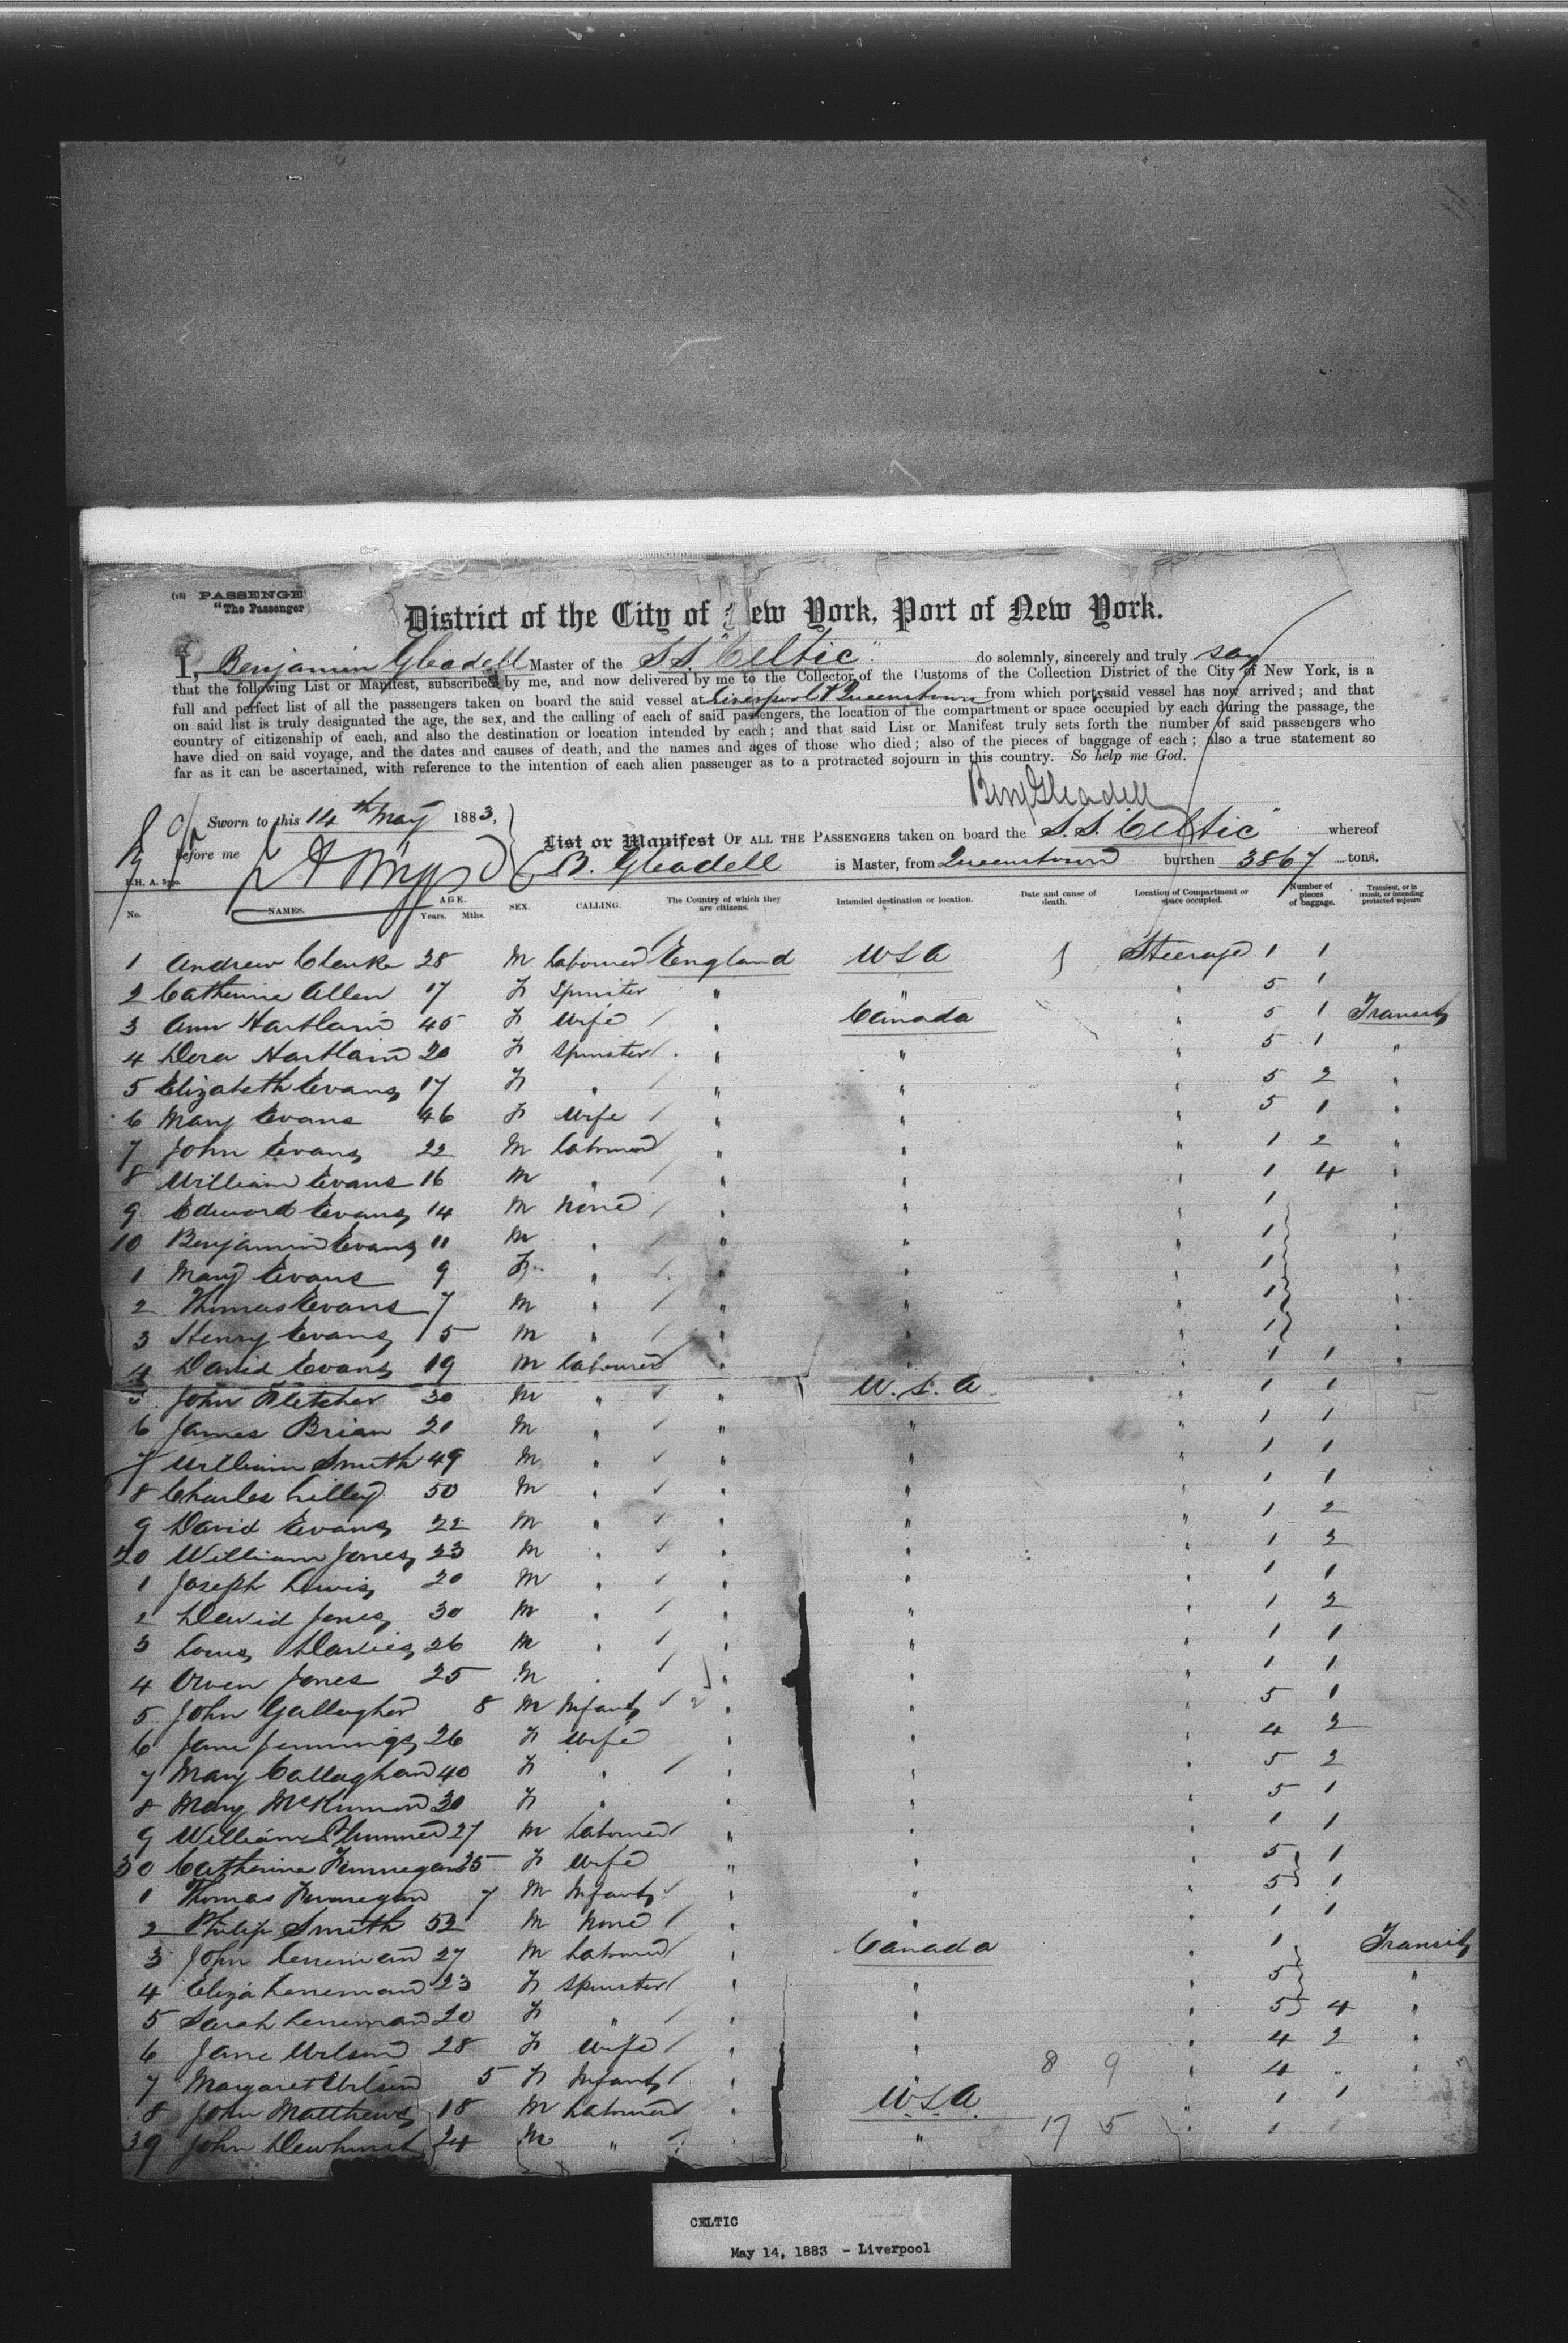 (18) PASSENGE
"The Passenger
District of the City of New York, Port of New York.
I, Benjamin Gleadell Master of the S.S. "Celtic" do solemnly, sincerely and truly say
that the following List or Manifest, subscribed by me, and now delivered by me to the Collector of the Customs of the Collection District of the City of New York, is a
full and perfect list of all the passengers taken on board the said vessel at Liverpool & Queenstown from which port said vessel has now arrived; and that
on said list is truly designated the age, the sex, and the calling of each of said passengers, the location of the compartment or space occupied by each during the passage, the
country of citizenship of each, and also the destination or location intended by each; and that said List or Manifest truly sets forth the number of said passengers who
have died on said voyage, and the dates and causes of death, and the names and ages of those who died; also of the pieces of baggage of each; also a true statement so
far as it can be ascertained, with reference to the intention of each alien passenger as to a protracted sojourn in this country. So help me God.
Benj Gleadell
Sworn to this 14th May 1883,
before me
List or Manifest OF ALL THE PASSENGERS taken on board the S.S. "Celtic" whereof
B. Gleadell is Master, from Queenstown burthen 3867 tons.
No. NAMES. AGE. Years. Mths. SEX. CALLING. The Country of which they are citizens. Intended destination or location. Date and cause of death. Location of Compartment or space occupied. Number of pieces of baggage. Transient, or in transit, or intending protracted sojourn
1 Andrew Clarke 28 M Labourer England USA Steerage 1 1
2 Catherine Allen 17 F Spinster " " " 5 1
3 Ann Hartlain 45 F Wife " Canada " 5 1 Transit
4 Dora Hartlain 20 F Spinster " " " 5 1 "
5 Elizabeth Evans 17 F " " " " 5 2 "
6 Mary Evans 46 F Wife " " " 5 1 "
7 John Evans 22 M Labourer " " " 1 2 "
8 William Evans 16 M " " " " 1 4 "
9 Edward Evans 14 M None " " " 1 "
10 Benjamin Evans 11 M " " " " 1 "
1 Mary Evans 9 F " " " " 1 "
2 Thomas Evans 7 M " " " " 1 "
3 Henry Evans 5 M " " " " 1 "
4 David Evans 19 M Labourer " " " 1 1 "
5 John Fletcher 30 M " " U.S.A " 1 1
6 James Brian 21 M " " " " 1 1
7 William Smith 49 M " " " " 1 1
8 Charles Lilley 50 M " " " " 1 1
9 David Evans 22 M " " " " 1 2
20 William Jones 23 M " " " " 1 2
1 Joseph Lewis 20 M " " " " 1 1
2 David Jones 30 M " " " " 1 2
3 Louis Davies 26 M " " " " 1 1
4 Owen Jones 25 M " " " " 1 1
5 John Gallagher 8 M Infant " " " 5 1
6 Jane Jennings 26 F Wife " " " 4 2
7 Mary Callaghan 40 F " " " " 5 2
8 Mary McKinnon 30 F " " " " 5 1
9 William 27 M Labourer " " " 1 1
30 Catherine Finnegan 25 F Wife " " " 5 1
1 Thomas Finnegan 7 M Infant " " " 5 1
2 Philip Smith 52 M None " " " 1 1
3 John Leneman 27 M Labourer " Canada " 1 Transit
4 Eliza Lenneman 23 F Spinster " " " 5 "
5 Sarah Lenneman 20 F " " " " 5 4 "
6 Jane Wilson 28 F Wife " " " 4 2 "
7 Margaret Wilson 5 F Infant " " 8 9 " 4 " "
8 John Matthews 18 M Labourer " USA " 1 1
39 John Dewhurst 24 M " " " 17 5 " 1 1
CELTIC
May 14, 1883 - Liverpool